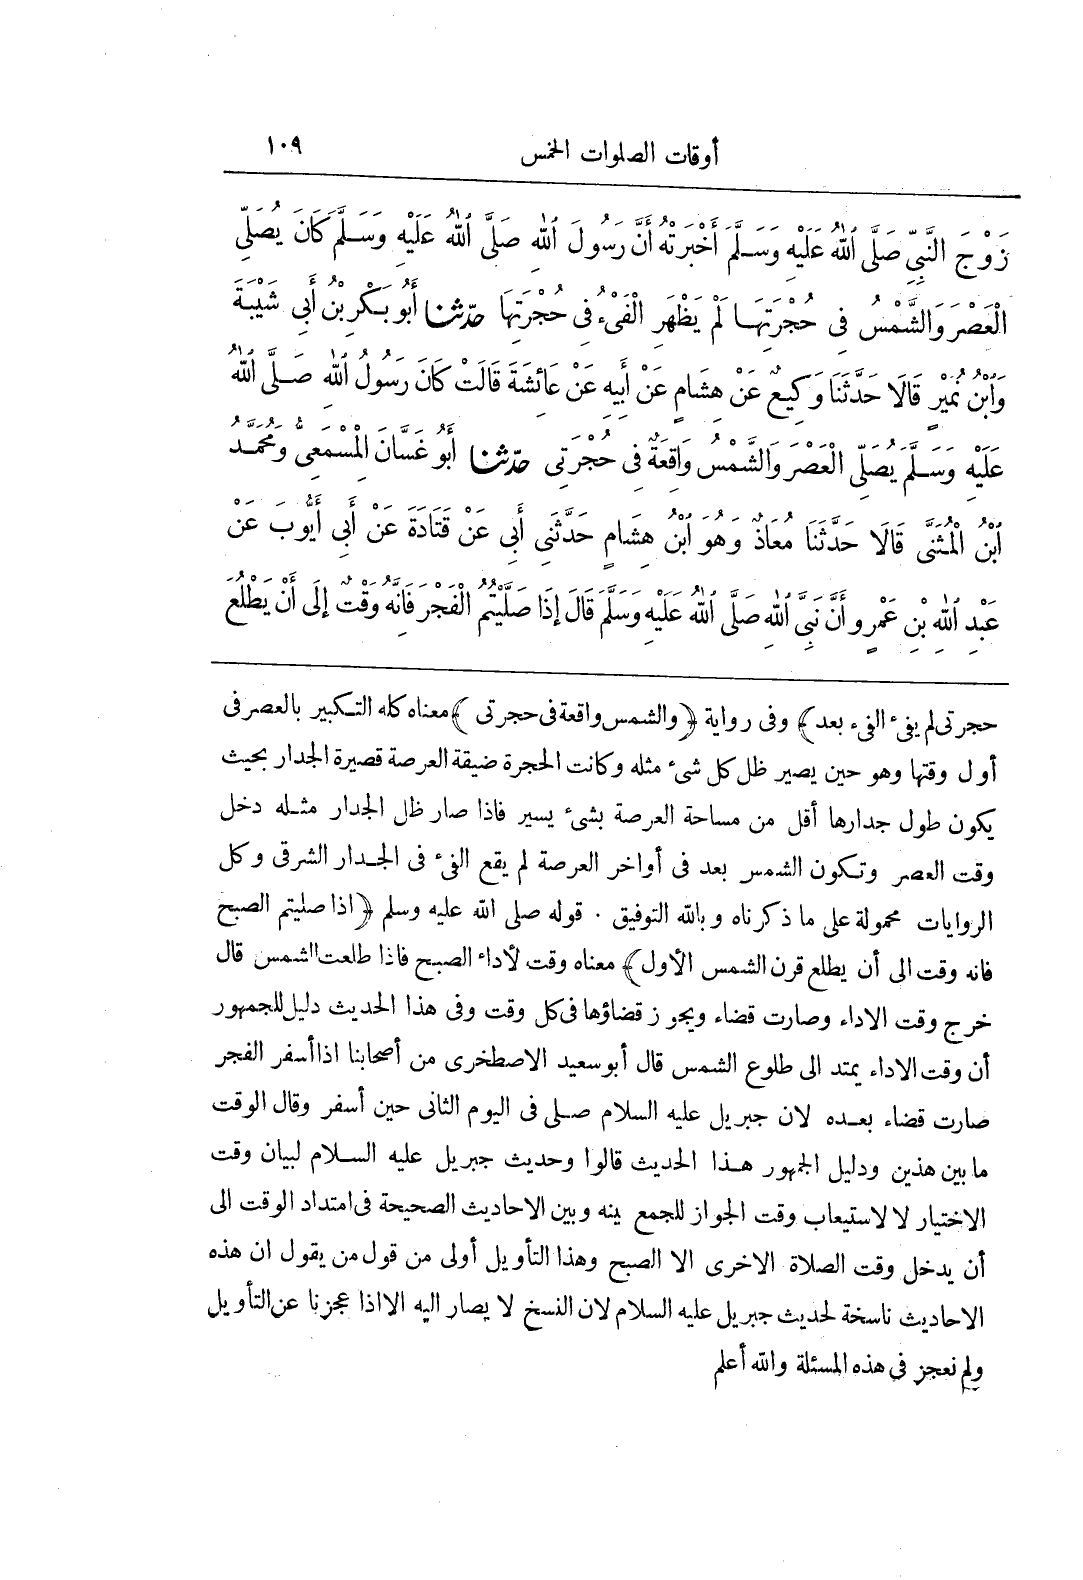 أوقات الصلوات الخمس ١٠٩
زَوْجَ النَّبِيِّ صَلَّى اللهُ عَلَيْهِ وَسَلَّمَ أَخْبَرَتْهُ أَنَّ رَسُولَ اللهِ صَلَّى اللهُ عَلَيْهِ وَسَلَّمَ كَانَ يُصَلِّي
الْعَصْرَ وَالشَّمْسُ فِي حُجْرَتِهَا لَمْ يَظْهَرِ الْفَيْءُ فِي حُجْرَتِهَا حدّثنا أَبُو بَكْرِ بْنُ أَبِي شَيْبَةَ
وَابْنُ نُمَيْرٍ قَالَا حَدَّثَنَا وَكِيعٌ عَنْ هِشَامٍ عَنْ أَبِيهِ عَنْ عَائِشَةَ قَالَتْ كَانَ رَسُولُ اللهِ صَلَّى اللهُ
عَلَيْهِ وَسَلَّمَ يُصَلِّي الْعَصْرَ وَالشَّمْسُ وَاقِعَةٌ فِي حُجْرَتِي حدّثنا أَبُو غَسَّانَ الْمِسْمَعِيُّ وَمُحَمَّدُ
ابْنُ الْمُثَنَّى قَالَا حَدَّثَنَا مُعَاذٌ وَهُوَ ابْنُ هِشَامٍ حَدَّثَنِي أَبِي عَنْ قَتَادَةَ عَنْ أَبِي أَيُّوبَ عَنْ
عَبْدِ اللهِ بْنِ عَمْرٍو أَنَّ نَبِيَّ اللهِ صَلَّى اللهُ عَلَيْهِ وَسَلَّمَ قَالَ إِذَا صَلَّيْتُمُ الْفَجْرَ فَإِنَّهُ وَقْتٌ إِلَى أَنْ يَطْلُعَ
حجرتى لم يفئ الفىء بعد﴾ وفى رواية ﴿والشمس واقعة فى حجرتى﴾ معناه كله التبكير بالعصر فى
أول وقتها وهو حين يصير ظل كل شىء مثله وكانت الحجرة ضيقة العرصة قصيرة الجدار بحيث
يكون طول جدارها أقل من مساحة العرصة بشىء يسير فاذا صار ظل الجدار مثله دخل
وقت العصر وتكون الشمس بعد فى أواخر العرصة لم يقع الفىء فى الجدار الشرقى وكل
الروايات محمولة على ما ذكرناه وبالله التوفيق . قوله صلى الله عليه وسلم ﴿اذا صليتم الصبح
فانه وقت الى أن يطلع قرن الشمس الأول﴾ معناه وقت لأداء الصبح فاذا طلعت الشمس قال
خرج وقت الاداء وصارت قضاء ويجوز قضاؤها فى كل وقت وفى هذا الحديث دليل للجمهور
أن وقت الاداء يمتد الى طلوع الشمس قال أبو سعيد الاصطخرى من أصحابنا اذا أسفر الفجر
صارت قضاء بعده لان جبريل عليه السلام صلى فى اليوم الثانى حين أسفر وقال الوقت
ما بين هذين ودليل الجمهور هذا الحديث قالوا وحديث جبريل عليه السلام لبيان وقت
الاختيار لا لاستيعاب وقت الجواز للجمع بينه وبين الاحاديث الصحيحة فى امتداد الوقت الى
أن يدخل وقت الصلاة الاخرى الا الصبح وهذا التأويل أولى من قول من يقول ان هذه
الاحاديث ناسخة لحديث جبريل عليه السلام لان النسخ لا يصار اليه الا اذا عجزنا عن التأويل
ولم نعجز فى هذه المسئلة والله أعلم